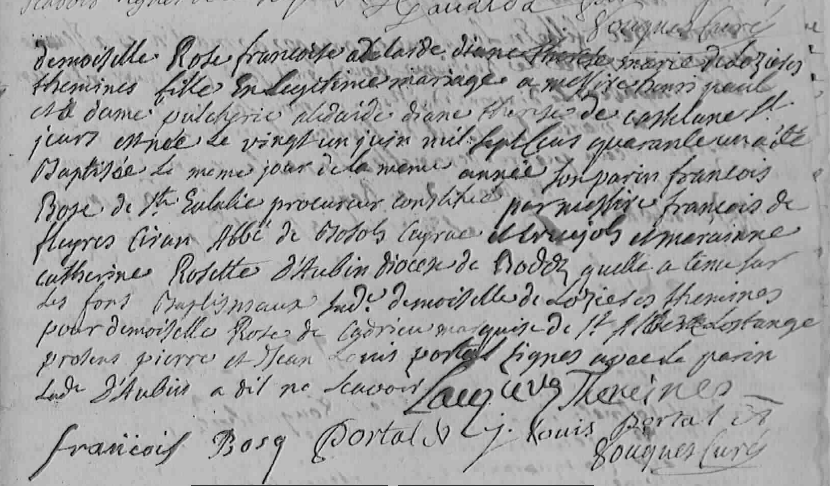 fouques Curé
demoiselle Rose francoise adelaide diane therese marie de Lozieres
themines fille En legitime mariage a messire henri paul
et a dame pulcherie adelaide diane therese de castelane St
jeurs est née Le vingt un juin mil sept Cens quarante un a été
Baptisée Le meme jour de la meme année son parin francois
Bosc de Ste Eulalie procureur constitué par messire francois de
fleyres Abbé de et marianne
catherine Rosette d'Aubin diocese de Rodez quelle a tenu sur
Les fons Baptismaux Lad.e demoiselle de Lozieres themines
pour demoiselle Rose de Cadrieu marquise de St Lostange
presens pierre et Jean Louis portal signés avec le parin
Lad.e d'Aubin a dit ne scavoir Themines
francois Bosq Portal j. Louis portal
fouques Curé